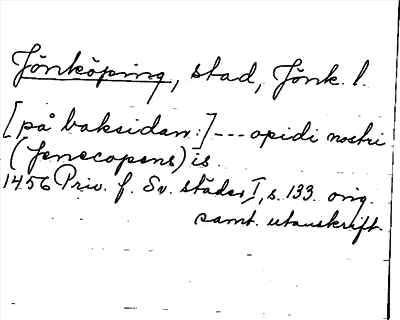 Jönköping, stad, Jönk. l.
[på baksidan:] --- opidi nostri
(Jenecopens) is.
1456 Priv. f. Sv. städer I, s. 133. orig.
samt. utanskrift